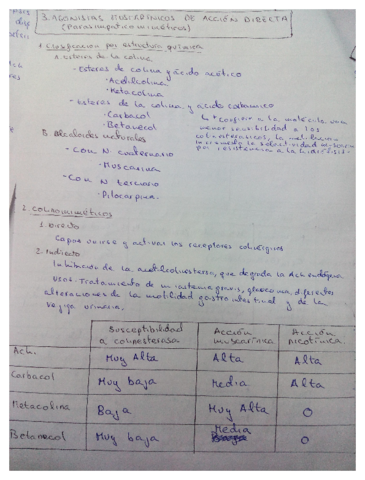 3. AGONISTAS MUSCARÍNICOS DE ACCIÓN DIRECTA
(Parasimpaticomiméticos)
1. Clasificación por estructura química
A. esteres de la colina
- esteres de colina y ácido acético
· Acetilcolina
· Metacolina
- esteres de la colina y ácido carbámico
· Carbacol
· Betanecol
confiere a la molécula una
menor sensibilidad a las
colinesterasas, la metilación
B. Alcaloides naturales
- Con N cuaternario
· Muscarina
- Con N terciario
· Pilocarpina.
2. COLINOMIMÉTICOS
1. Directo
Capaz unirse y activar los receptores colinérgicos
2. Indirecto
Inhibición de la acetilcolinesterasa, que degrada la Ach endógena
Usos: Tratamiento de miastemia gravis, glaucoma, diferentes
alteraciones de la motilidad gastrointestinal y de la
vejiga urinaria.
Susceptibilidad a colinesterasa Acción muscarínica Acción nicotínica.
Ach. Muy Alta Alta Alta
Carbacol Muy baja Media Alta
Metacolina Baja Muy Alta 0
Betanecol Muy baja Media 0